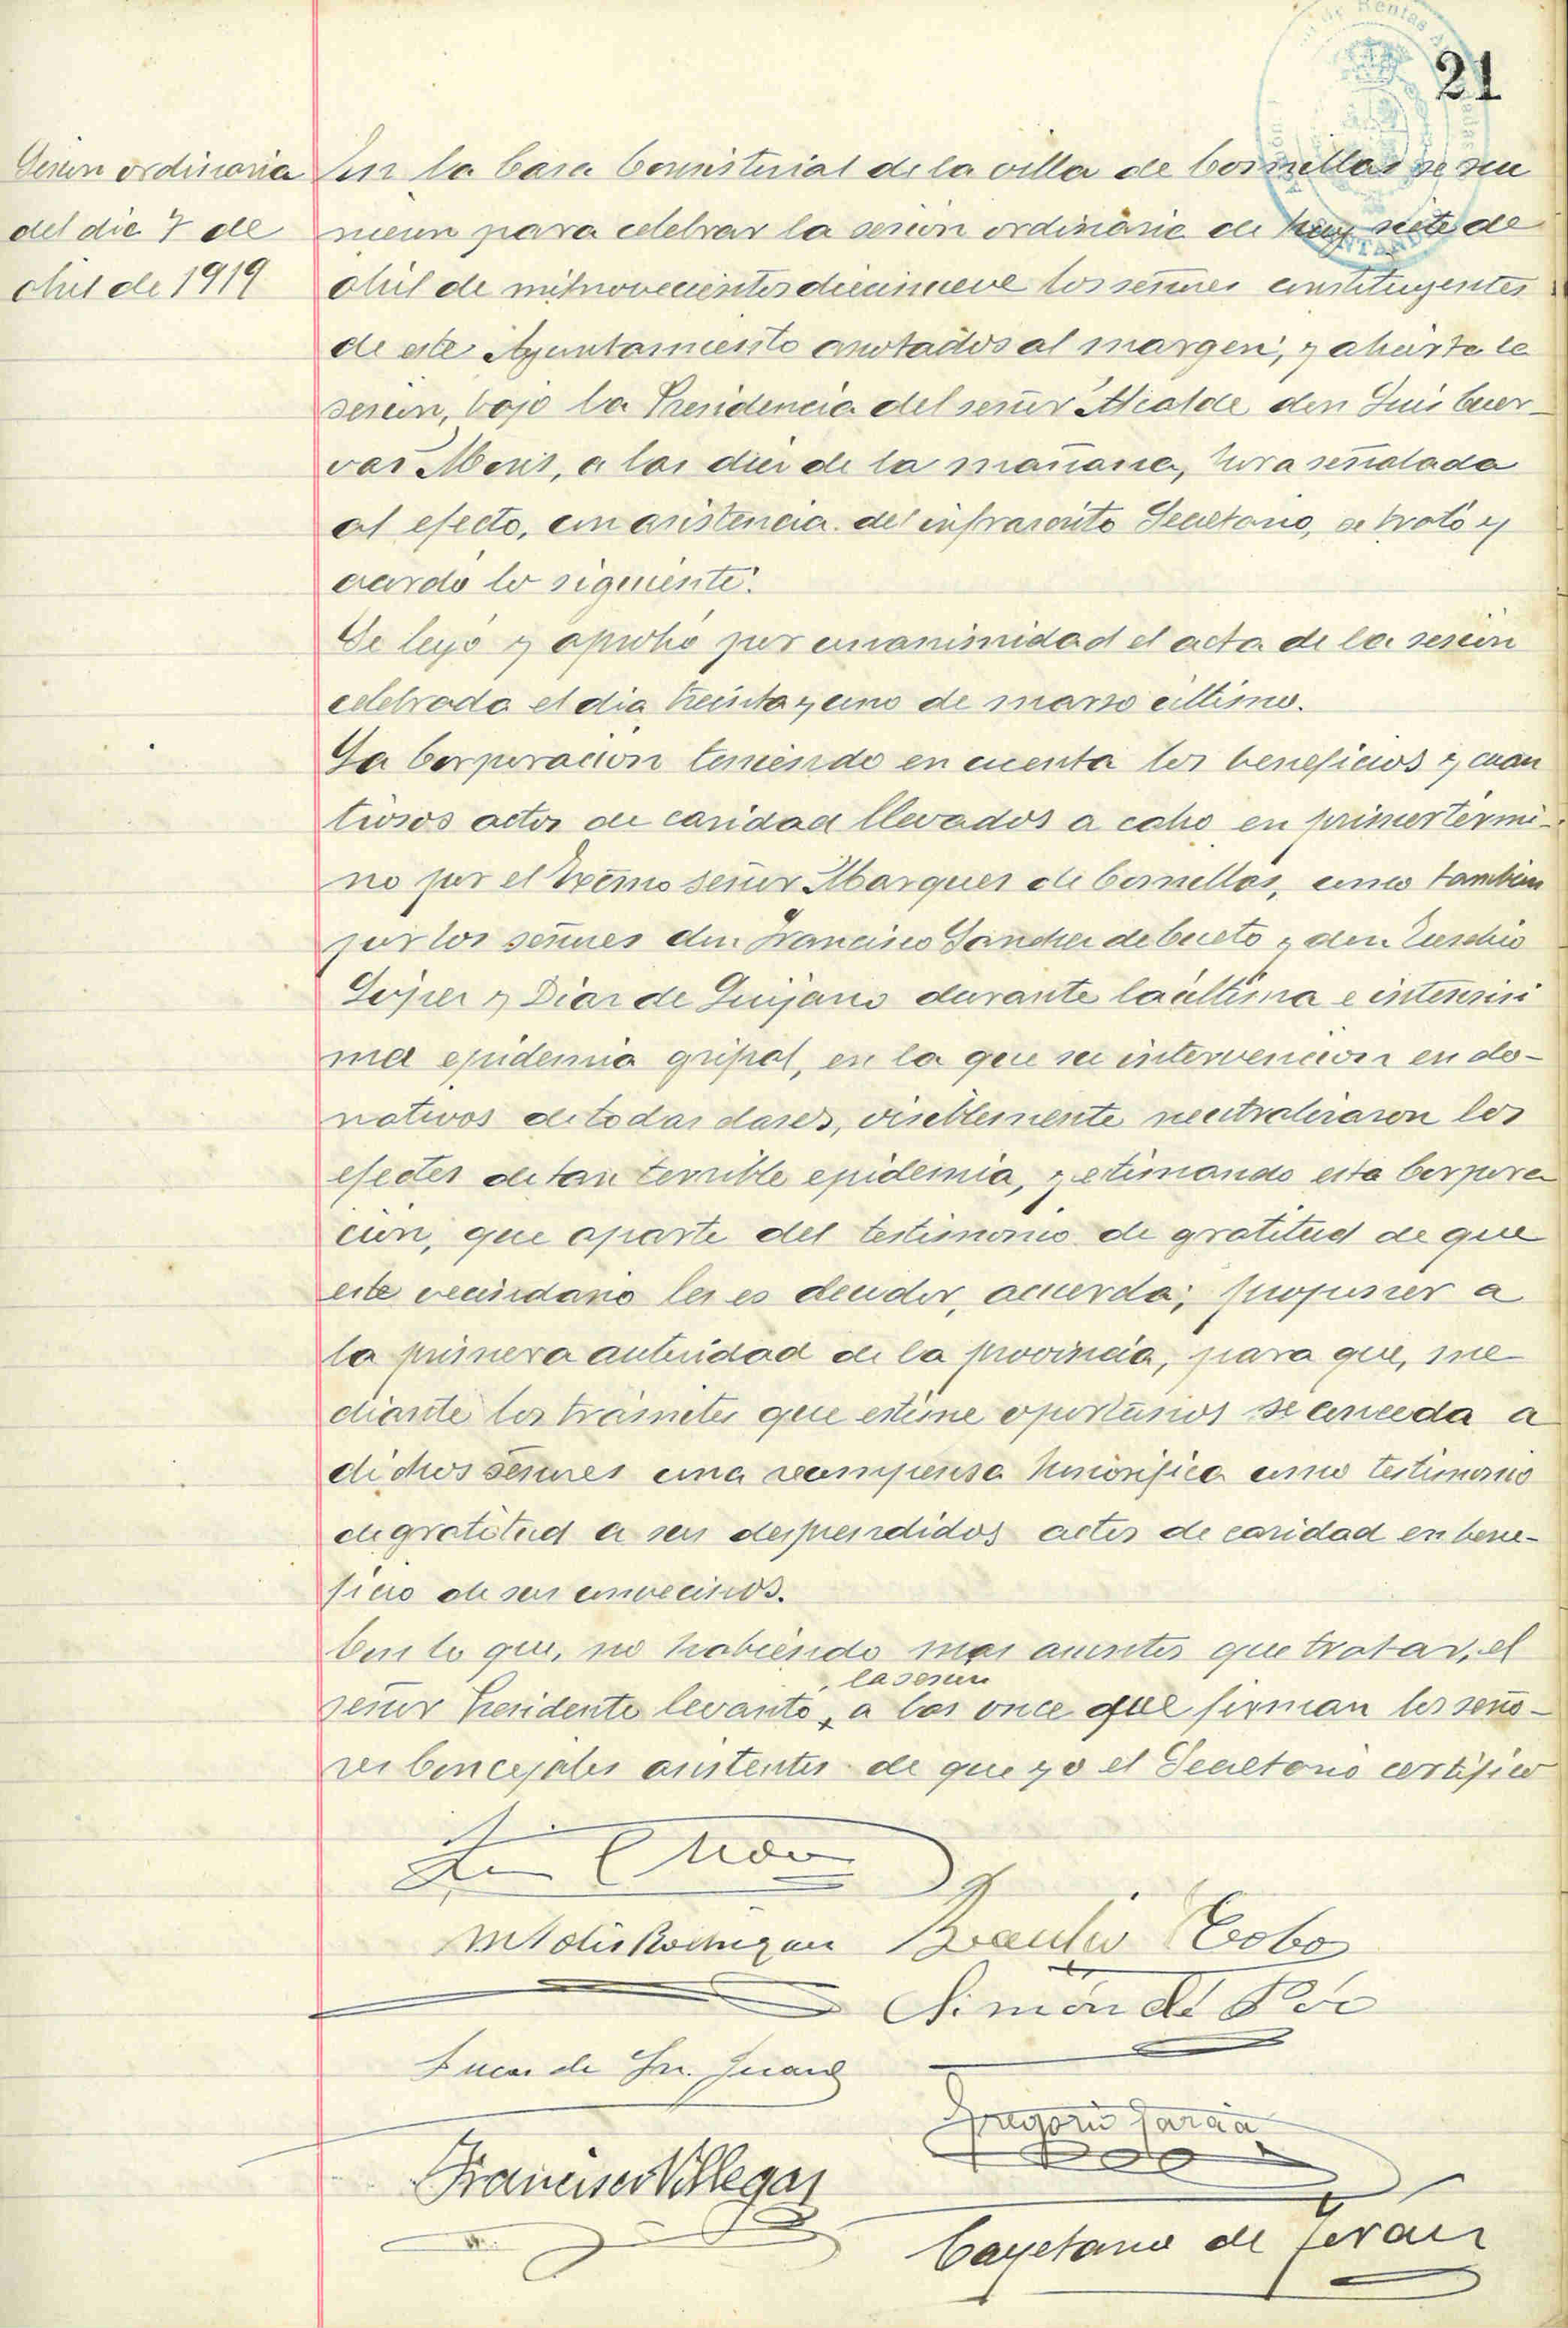 21
Sesion ordinaria
del dia 7 de
abril de 1919
En la Casa Consistorial de la villa de Comillas se reu
nieron para celebrar la sesion ordinaria de hoy siete de
abril de mil novecientos diecinueve los señores constituyentes
de este Ayuntamiento anotados al margen, y abierta la
sesion, bajo la Presidencia del señor Alcalde don Luis Cuer-
vas Mons, a las diez de la mañana, hora señalada
al efecto, con asistencia del infrascrito Secretario, se trató y
acordó lo siguiente:
Se leyó y aprobó por unanimidad el acta de la sesión
celebrada el dia treinta y uno de marzo último.
La Corporacion teniendo en cuenta los beneficios y cuan
tiosos actos de caridad llevados a cabo en primer térmi-
no por el Excmo señor Marques de Comillas, como tambien
por los señores don Francisco Sanchez de Cueto y don Eusebio
López y Diaz de Quijano durante la última e intensisi
ma epidemia gripal, en la que su intervencion en do-
nativos de todas clases, visiblemente neutralizaron los
efectos de tan terrible epidemia, y estimando esta Corpora
cion, que aparte del testimonio de gratitud de que
este vecindario les es deudor, acuerda; proponer a
la primera autoridad de la provincia, para que, me
diante los trámites que estime oportunos se conceda a
dichos señores una recompensa honorifica como testimonio
de gratitud a sus desprendidos actos de caridad en bene-
ficio de sus convecinos.
Con lo que, no habiendo mas asuntos que tratar, el
la sesion
señor Presidente levantó, a las once que firman los seño-
res Concejales asistentes de que yo el Secretario certifico
Braulio Cobo
Simón de Poo
Lucas de Sn. Juan
Gregorio Garcia
Francisco Villegas
Cayetano de Terán